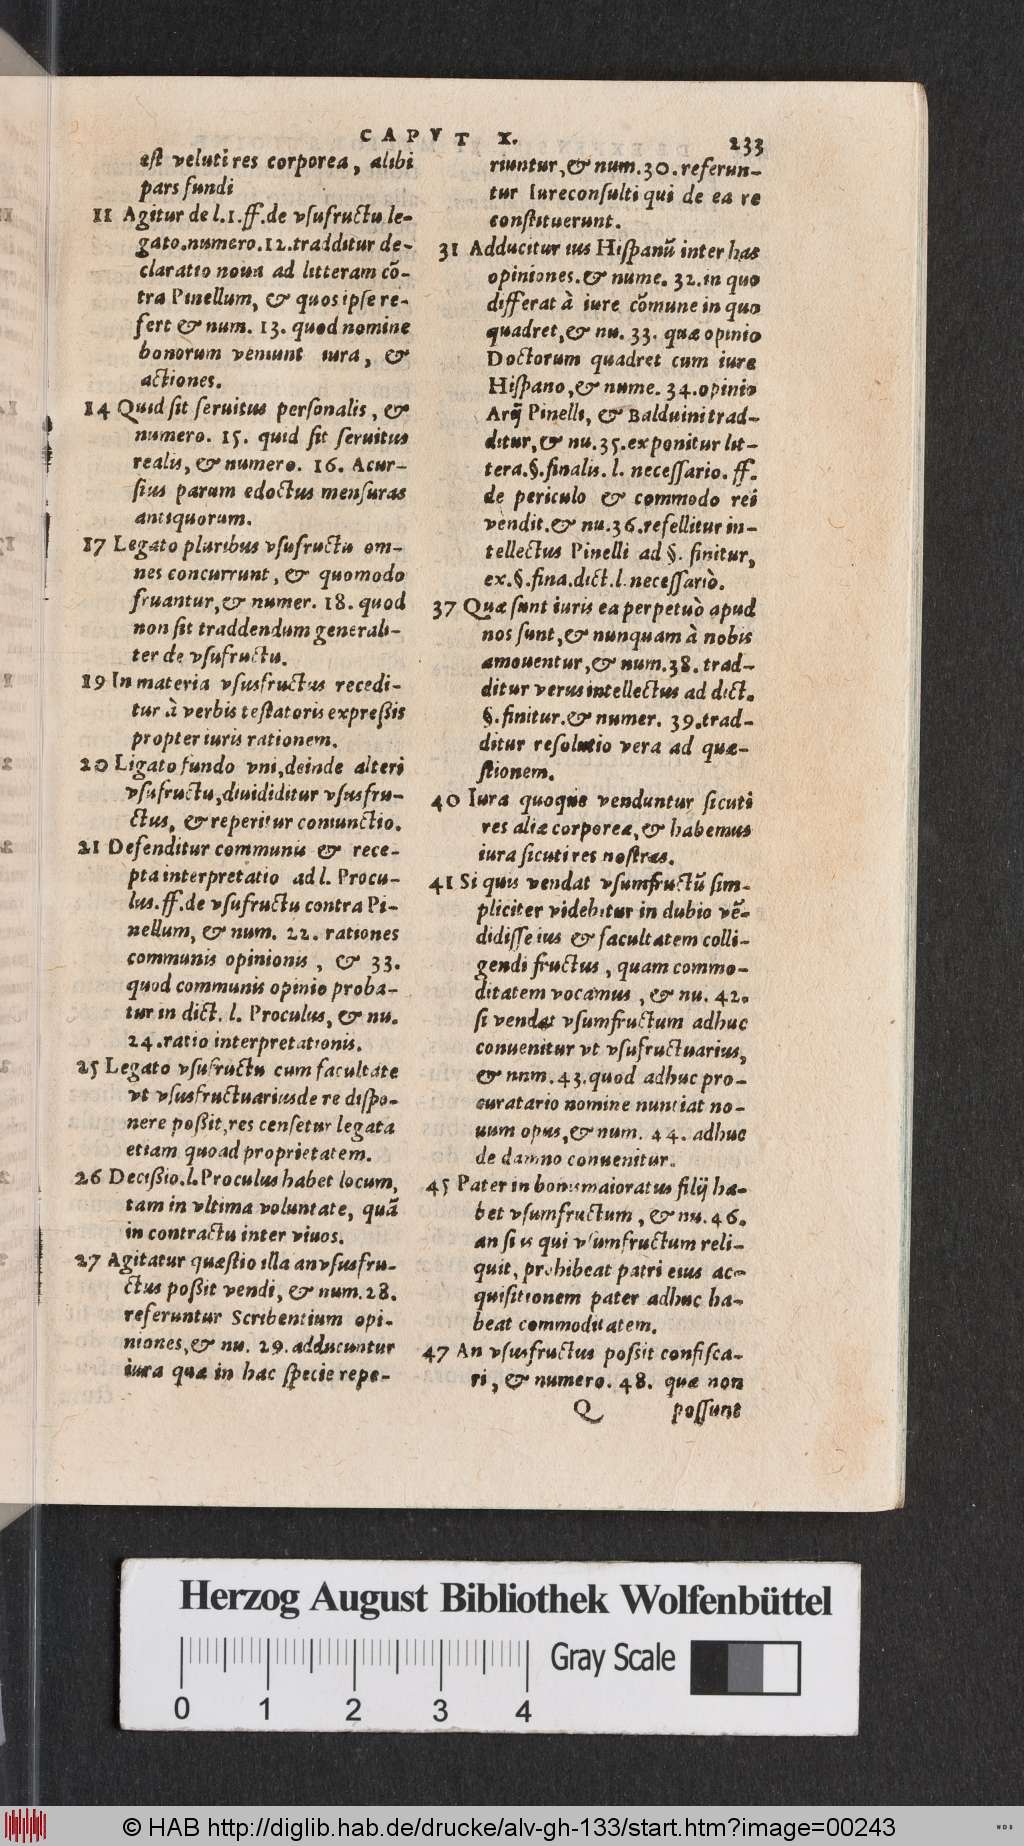 CAPVT X. 233
est veluti res corporea, alibi
pars fundi
11 Agitur de l.1.ff.de vsufructu le-
gato.numero.12.tradditur de-
claratio noua ad litteram cõ-
tra Pinellum, & quos ipse re-
fert & num. 13. quod nomine
bonorum veniunt iura, &
actiones.
14 Quid sit seruitus personalis, &
numero. 15. quid sit seruitus
realis, & numero. 16. Acur-
sius parum edoctus mensuras
antiquorum.
17 Legato pluribus vsufructu om-
nes concurrunt, & quomodo
fruantur, & numer. 18. quod
non sit traddendum generali-
ter de vsufructu.
19 In materia vsusfructus recedi-
tur à verbis testatoris expreßis
propter iuris rationem.
20 Ligato fundo vni, deinde alteri
vsufructu, diuididitur vsusfru-
ctus, & reperitur coniunctio.
21 Defenditur communis & rece-
pta interpretatio ad l. Procu-
lus.ff.de vsufructu contra Pi-
nellum, & num. 22. rationes
communis opinionis, & 33.
quod communis opinio proba-
tur in dict. l. Proculus, & nu.
24.ratio interpretationis.
25 Legato vsufructu cum facultate
vt vsusfructuarius de re dispo-
nere poßit, res censetur legata
etiam quoad proprietatem.
26 Decißio.l.Proculus habet locum,
tam in vltima voluntate, quã
in contractu inter viuos.
27 Agitatur quæstio illa an vsusfru-
ctus poßit vendi, & num.28.
referuntur Scribentium opi-
niones, & nu. 29. adducuntur
iura quæ in hac specie repe-
riuntur, & num.30.referun-
tur Iureconsulti qui de ea re
constituerunt.
31 Adducitur ius Hispanũ inter has
opiniones. & nume. 32.in quo
differat à iure cõmune in quo
quadret, & nu. 33. quæ opinio
Doctorum quadret cum iure
Hispano, & nume. 34.opinio
Arij Pinelli, & Balduini trad-
ditur, & nu.35.exponitur lit-
tera.§.finalis. l. necessario. ff.
de periculo & commodo rei
vendit. & nu.36.refellitur in-
tellectus Pinelli ad §. finitur,
ex.§.fina.dict.l.necessariò.
37 Quæ sunt iuris ea perpetuò apud
nos sunt, & nunquam à nobis
amouentur, & num.38. trad-
ditur verus intellectus ad dict.
§.finitur. & numer. 39.trad-
ditur resolutio vera ad quæ-
stionem.
40 Iura quoque venduntur sicuti
res aliæ corporeæ, & habemus
iura sicuti res nostras.
41 Si quis vendat vsumfructũ sim-
pliciter videbitur in dubio vẽ-
didisse ius & facultatem colli-
gendi fructus, quam commo-
ditatem vocamus, & nu. 42.
si vendat vsumfructum adhuc
conuenitur vt vsufructuarius,
& num. 43.quod adhuc pro-
curatario nomine nuntiat no-
uum opus, & num. 44. adhuc
de damno conuenitur.
45 Pater in bonis maioratus filij ha-
bet vsumfructum, & nu.46.
an si is qui vsumfructum reli-
quit, prohibeat patri eius ac-
quisitionem pater adhuc ha-
beat commoditatem.
47 An vsusfructus possit confisca-
ri, & numero. 48. quæ non
Q possunt
Herzog August Bibliothek Wolfenbüttel
Gray Scale
0 1 2 3 4
© HAB http://diglib.hab.de/drucke/alv-gh-133/start.htm?image=00243